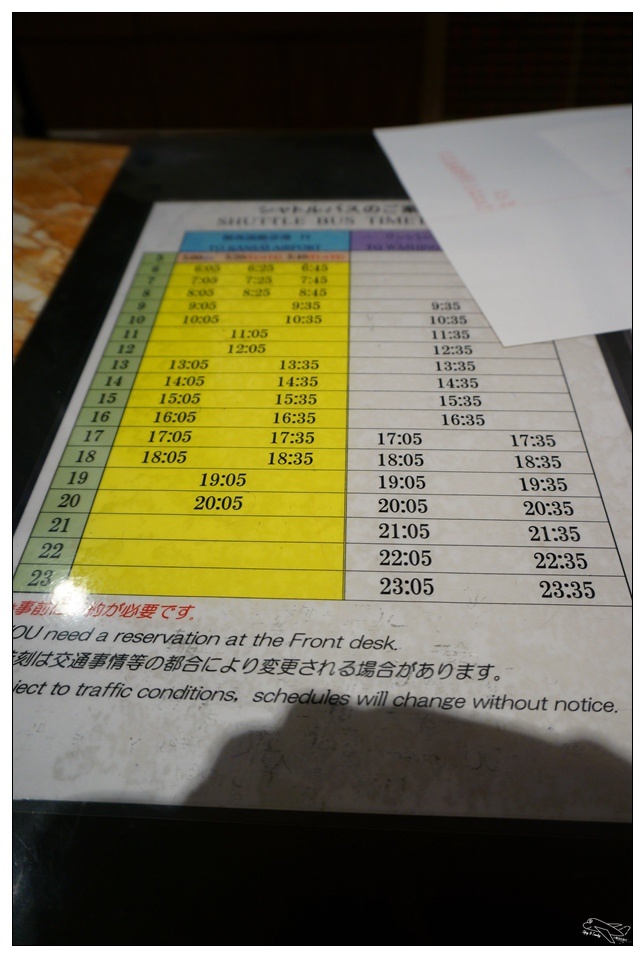 シャトルバスのご案
SHUTTLE BUS TIMET
TO KANSAI AIRPORT
5
6 6:05 6:25 6:45
7 7:05 7:25 7:45
8 8:05 8:25 8:45
9 9:05 9:35 9:35
10 10:05 10:35 10:35
11 11:05 11:35
12 12:05 12:35
13 13:05 13:35 13:35
14 14:05 14:35 14:35
15 15:05 15:35 15:35
16 16:05 16:35 16:35
17 17:05 17:35 17:05 17:35
18 18:05 18:35 18:05 18:35
19 19:05 19:05 19:35
20 20:05 20:05 20:35
21 21:05 21:35
22 22:05 22:35
23 23:05 23:35
事前に 約が必要です。
OU need a reservation at the Front desk.
刻は交通事情等の都合により変更される場合があります。
ject to traffic conditions, schedules will change without notice.